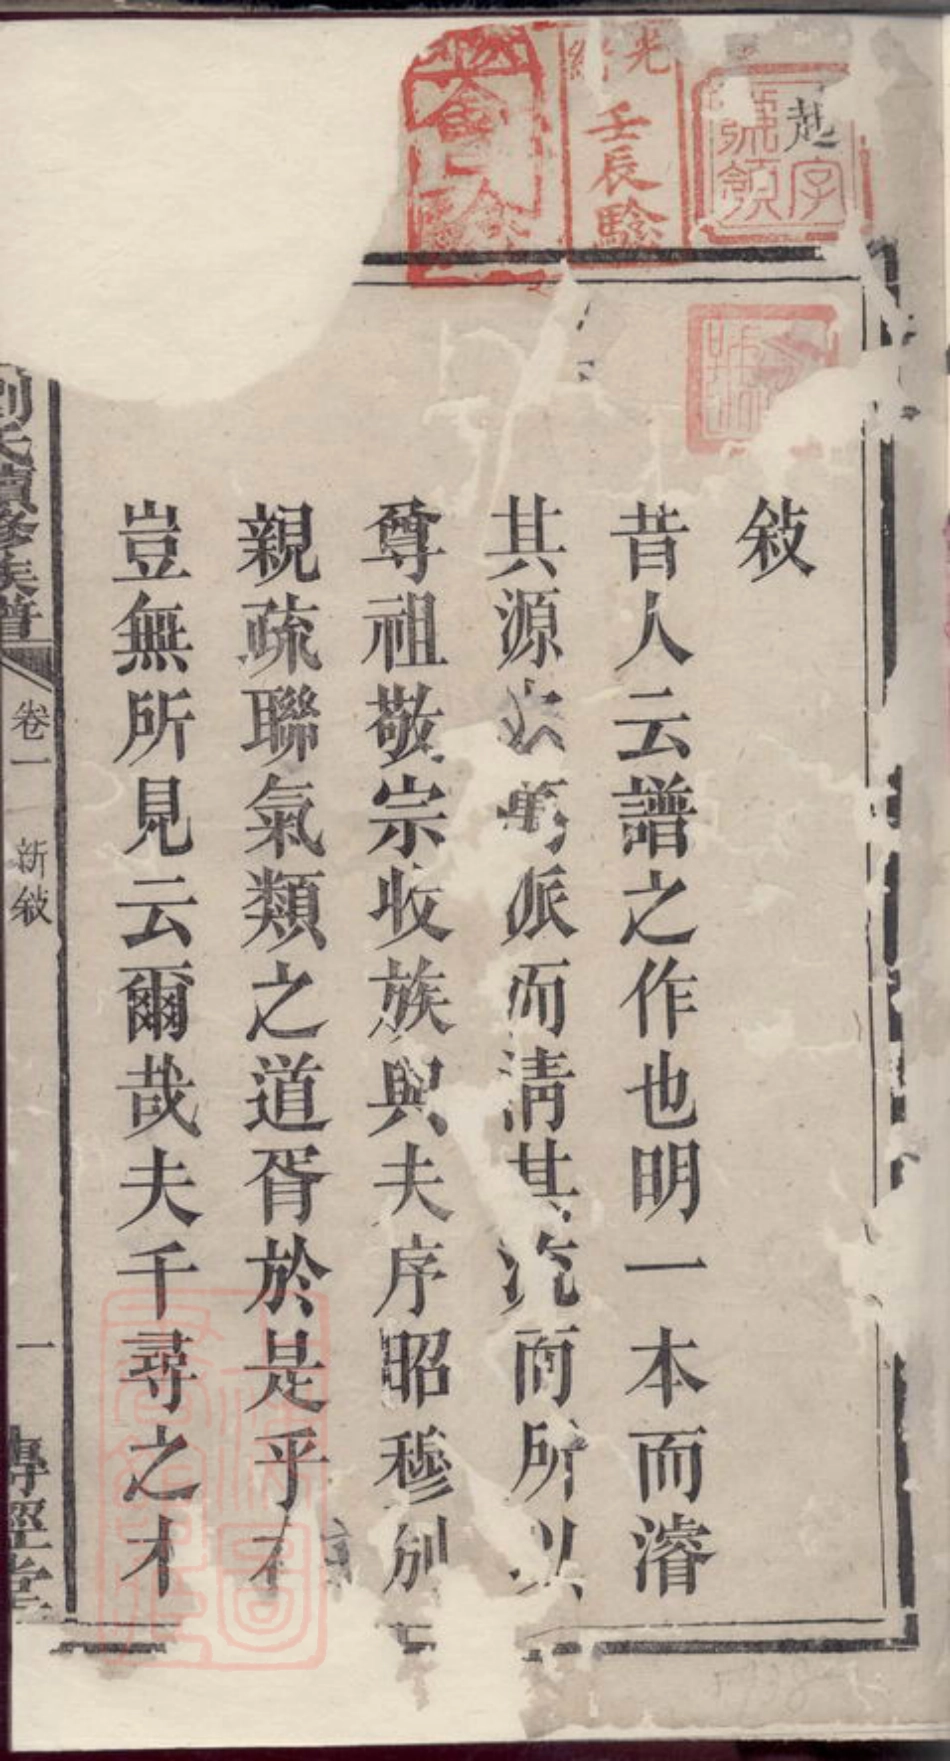 敍
昔人云譜之作也明一本而濬
其源 萬派而清其流而所以
尊祖敬宗收族與夫序昭穆別
親疏聯氣類之道胥於是乎
豈無所見云爾哉夫千尋之木
劉氏續修族譜
卷一
新敍
一
傳經堂
光緒
壬辰驗
起字
號領